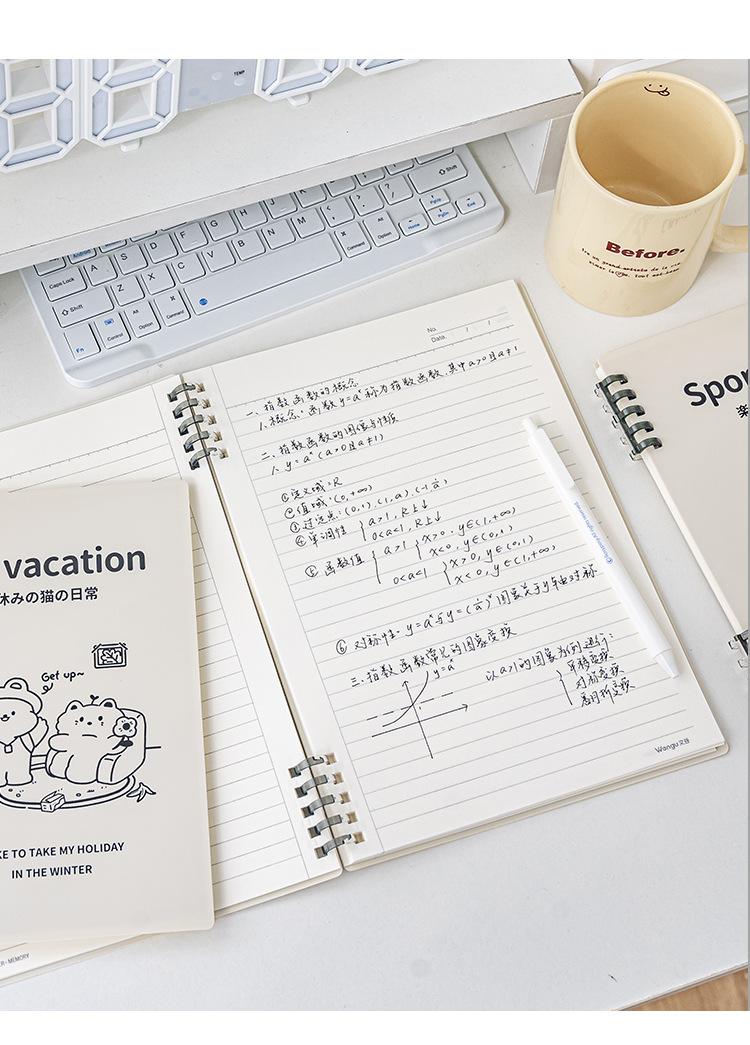 TEMP
Shift
PgUp
PgDn
End
Home
Command
Option
Caps Lock
A S D F G H J K L
Shift
Z X C V B N M
Fn
Control
Alt
Option
Command
Before.
No.
Date.
一、指数函数的概念
1、概念：函数y=aˣ称为指数函数，其中a>0且a≠1
二、指数函数的图像与性质
1、y=aˣ(a>0且a≠1)
①定义域：R
②值域：(0,+∞)
③过定点：(0,1).(1,a).(-1,1/a)
④单调性 { a>1, R上↓
0<a<1, R上↓
⑤函数值 { a>1 { x>0, y∈(1,+∞)
x<0, y∈(0,1)
0<a<1 { x>0, y∈(0,1)
x<0, y∈(1,+∞)
⑥对称性：y=aˣ与y=(1/a)ˣ图象关于y轴对称
三、指数函数常见的图象变换
y=aˣ
以a>1的图象为例进行：
平移变换
对称变换
Wangu 文谷
Spor
楽
vacation
休みの猫の日常
Get up~
KE TO TAKE MY HOLIDAY
IN THE WINTER
ER • MEMORY